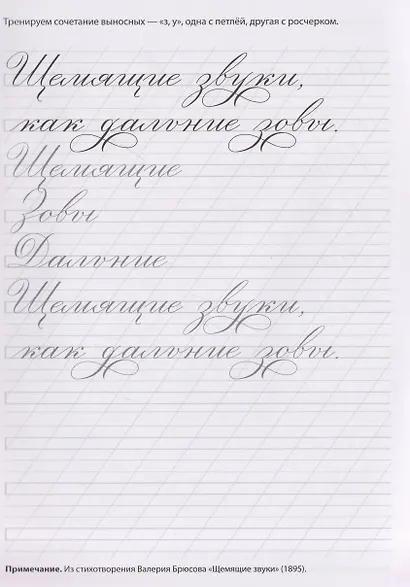 Тренируем сочетание выносных — «з, у», одна с петлёй, другая с росчерком.
Щемящие звуки,
как дальние зовы.
Щемящие
Зовы
Дальние
Щемящие звуки,
как дальние зовы.
Примечание. Из стихотворения Валерия Брюсова «Щемящие звуки» (1895).